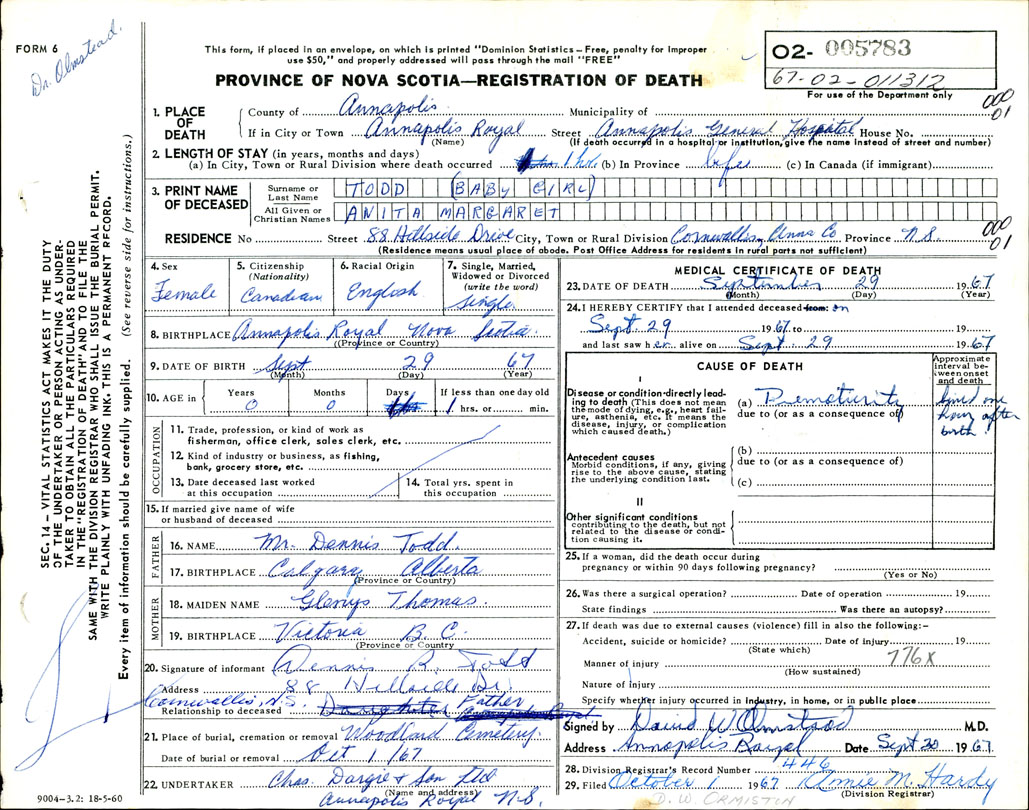 FORM 6
Dr. Olmstead.
This form, if placed in an envelope, on which is printed "Dominion Statistics – Free, penalty for improper
use $50," and properly addressed will pass through the mail "FREE"
PROVINCE OF NOVA SCOTIA—REGISTRATION OF DEATH
02- 005783
67-02-011312
For use of the Department only
000
01
1. PLACE OF DEATH
County of Annapolis. Municipality of
If in City or Town Annapolis Royal Street Annapolis General Hospital House No.
(Name) (If death occurred in a hospital or institution, give the name instead of street and number)
2. LENGTH OF STAY (in years, months and days)
(a) In City, Town or Rural Division where death occurred 1 hr (b) In Province life (c) In Canada (if immigrant)
3. PRINT NAME OF DECEASED
Surname or Last Name TODD (BABY GIRL)
All Given or Christian Names ANITA MARGARET
RESIDENCE No Street 88 Hillside Drive City, Town or Rural Division Cornwallis, Anna Co. Province N.S.
000
01
(Residence means usual place of abode. Post Office Address for residents in rural parts not sufficient)
4. Sex
Female
5. Citizenship
(Nationality)
Canadian
6. Racial Origin
English
7. Single, Married,
Widowed or Divorced
(write the word)
Single
8. BIRTHPLACE Annapolis Royal Nova Scotia.
(Province or Country)
9. DATE OF BIRTH Sept 29 67
(Month) (Day) (Year)
10. AGE in Years Months Days If less than one day old
0 0 1 hrs. or min.
OCCUPATION
11. Trade, profession, or kind of work as
fisherman, office clerk, sales clerk, etc.
12. Kind of industry or business, as fishing,
bank, grocery store, etc.
13. Date deceased last worked
at this occupation
14. Total yrs. spent in
this occupation
15. If married give name of wife
or husband of deceased
FATHER
16. NAME Mr. Dennis Todd.
17. BIRTHPLACE Calgary Alberta
(Province or Country)
MOTHER
18. MAIDEN NAME Glenys Thomas.
19. BIRTHPLACE Victoria B.C.
(Province or Country)
20. Signature of informant Dennis R. Todd
Address 88 Hillside Dr.
Cornwallis, N.S. Father
Relationship to deceased
21. Place of burial, cremation or removal Woodland Cemetery.
Date of burial or removal Oct 1/67
22. UNDERTAKER Chas. Dargie & Son Ltd
(Name and address)
Annapolis Royal N.S.
9004-3.2: 18-5-60
MEDICAL CERTIFICATE OF DEATH
23. DATE OF DEATH September 29 1967
(Month) (Day) (Year)
24. I HEREBY CERTIFY that I attended deceased from: on
Sept 29 1967 to 19
and last saw her alive on Sept. 29 1967
CAUSE OF DEATH
Approximate
interval between onset
and death
I
Disease or condition directly leading to death (This does not mean
the mode of dying, e.g., heart failure, asthenia, etc. It means the
disease, injury, or complication
which caused death.)
(a) Prematurity
due to (or as a consequence of)
lived one
hour after
birth
Antecedent causes
Morbid conditions, if any, giving
rise to the above cause, stating
the underlying condition last.
(b)
due to (or as a consequence of)
(c)
II
Other significant conditions
contributing to the death, but not
related to the disease or condition causing it.
25. If a woman, did the death occur during
pregnancy or within 90 days following pregnancy?
(Yes or No)
26. Was there a surgical operation? Date of operation 19
State findings Was there an autopsy?
27. If death was due to external causes (violence) fill in also the following:–
Accident, suicide or homicide? Date of injury 19
(State which)
776X
Manner of injury
(How sustained)
Nature of injury
Specify whether injury occurred in industry, in home, or in public place
Signed by David W Olmstead M.D.
Address Annapolis Royal Date Sept 30 1967
28. Division Registrar's Record Number 446
29. Filed October 1 1967 Annie M. Hardy
(Division Registrar)
D. W. ORMISTON
SEC. 14 – VITAL STATISTICS ACT MAKES IT THE DUTY
OF THE UNDERTAKER OR PERSON ACTING AS UNDERTAKER TO OBTAIN ALL THE PARTICULARS REQUIRED
IN THE "REGISTRATION OF DEATH" AND TO FILE THE
SAME WITH THE DIVISION REGISTRAR WHO SHALL ISSUE THE BURIAL PERMIT.
WRITE PLAINLY WITH UNFADING INK. THIS IS A PERMANENT RECORD.
Every item of information should be carefully supplied. (See reverse side for instructions.)